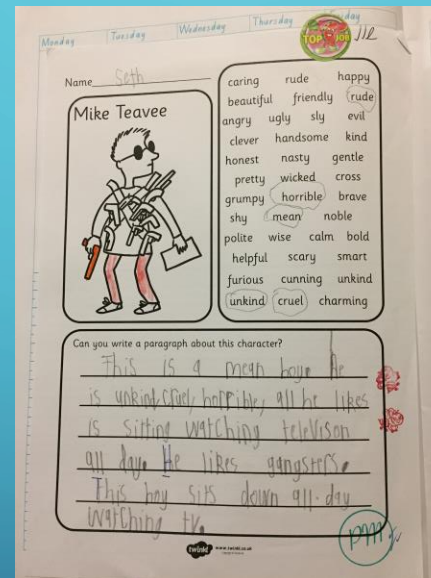 Monday Tuesday Wednesday Thursday
TOP JOB
Name Seth
Mike Teavee
caring rude happy
beautiful friendly rude
angry ugly sly evil
clever handsome kind
honest nasty gentle
pretty wicked cross
grumpy horrible brave
shy mean noble
polite wise calm bold
helpful scary smart
furious cunning unkind
unkind cruel charming
Can you write a paragraph about this character?
This is a mean boy. He
is unkind, cruel, horrible, all he likes
is sitting watching televison
all day. He likes gangsters.
This boy sits down all day
watching tv.
twinkl www.twinkl.co.uk